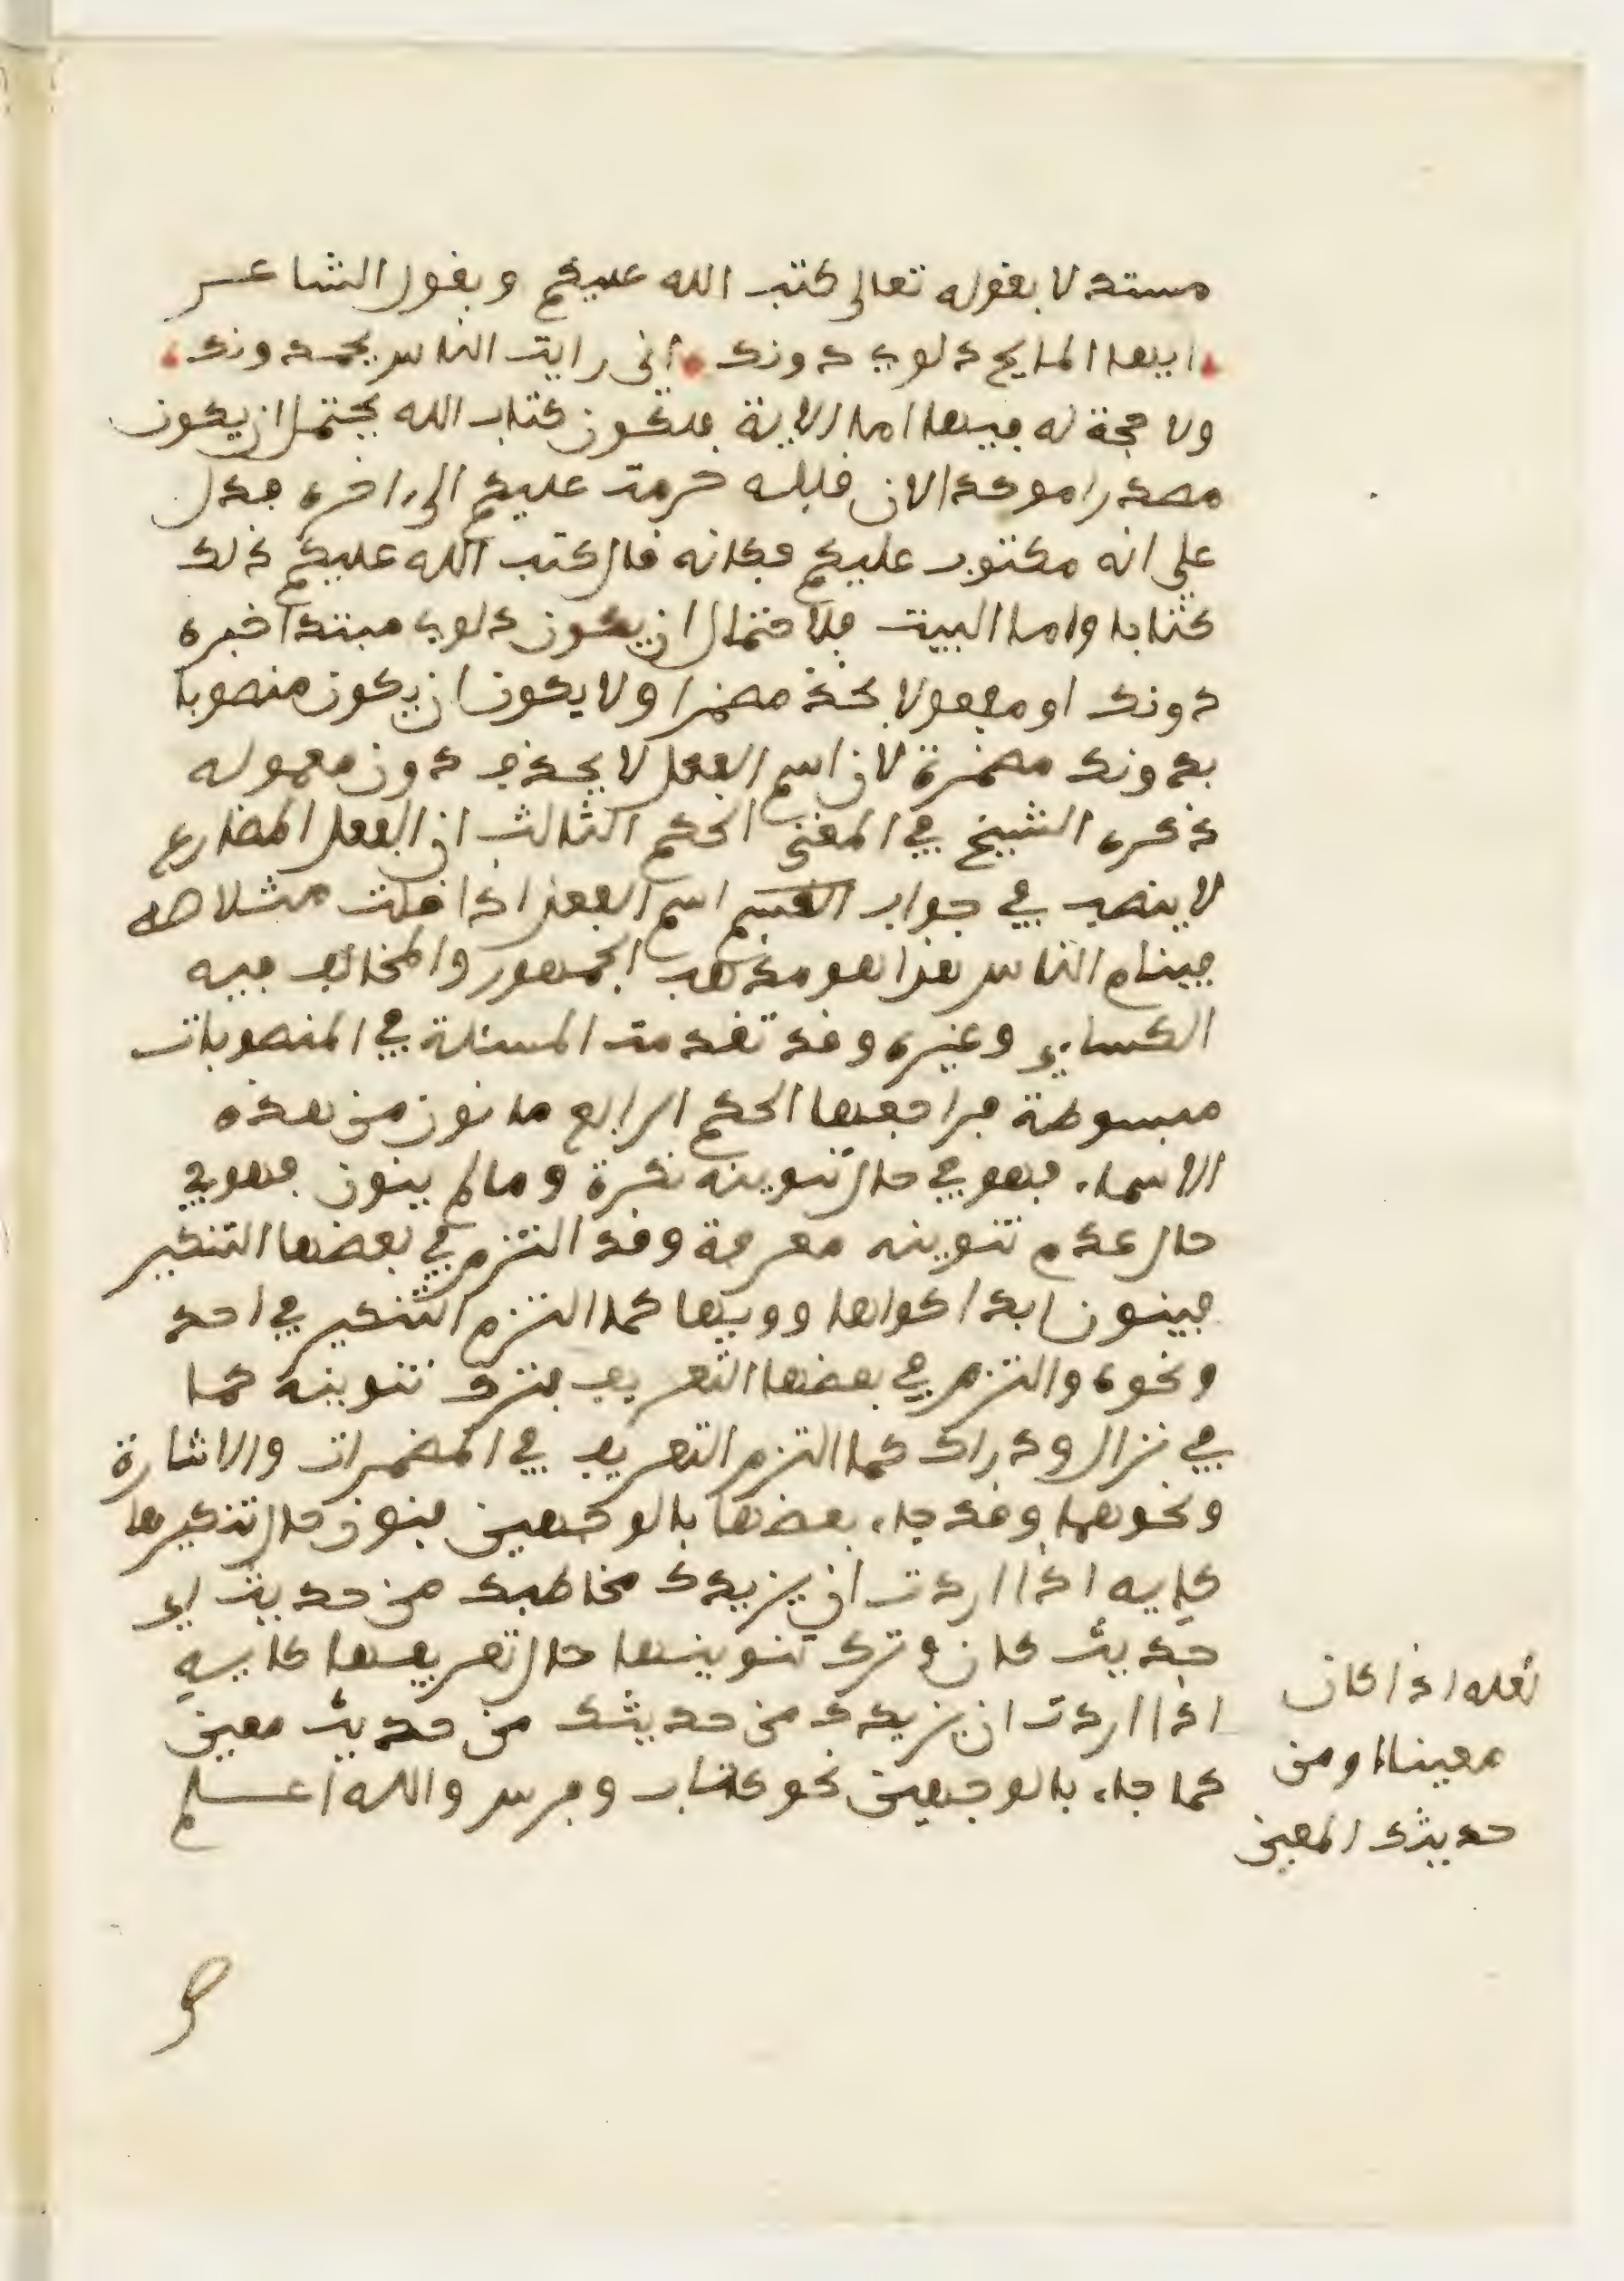 مستدلا بقوله تعالى كتب الله عليكم وبقول الشاعر
ايها المايح دلوي دونك اني رايت الناس يحمدونك
ولا حجة له فيها اما الاية فلكون كتاب الله يحتمل ان يكون
مصدرا موكدا لان قبله حرمت عليكم الى اخره فدل
على انه مكتوب عليكم فكانه قال كتب الله عليكم ذلك
كتابا واما البيت فلاحتمال ان يكون دلوي مبتدا خبره
دونك او مفعولا بخذ مضمرا ولا يكون ان يكون منصوبا
بدونك مضمرة لان اسم الفعل لا يحذف دون معموله
ذكره الشيخ في المغني الحكم الثالث ان الفعل المضارع
لا ينصب في جواب القسم اسم الفعل اذا قلت مثلا صه
فينام الناس هذا هو مذهب الجمهور والمخالف فيه
الكسايي وغيره وقد تقدمت المسئلة في المنصوبات
مبسوطة فراجعها الحكم الرابع ما نون من هذه
الاسماء فهو في حال تنوينه نكرة وما لم ينون فهو في
حال عدم تنوينه معرفة وقد التزم في بعضها التنكير
فينون ابدا كواها وويها كما التزم التنكير في احد
ونحوه والتزم في بعضها التعريف فترك تنوينه كما
في نزال ودراك كما التزم التعريف في المضمرات والاشارة
ونحوهما وقد جاء بعضها بالوجهين فنون حال تنكيرها
كايه اذا اردت ان يزيدك مخاطبك من حديث اي
حديث كان وترك تنوينها حال تعريفها كايهِ
اذا اردت ان يزيدك من حديثك من حديث معين
كما جاء بالوجهين نحو كتاب وفرس والله اعلم
لعله اذا كان
معينا او من
حديثك المعين